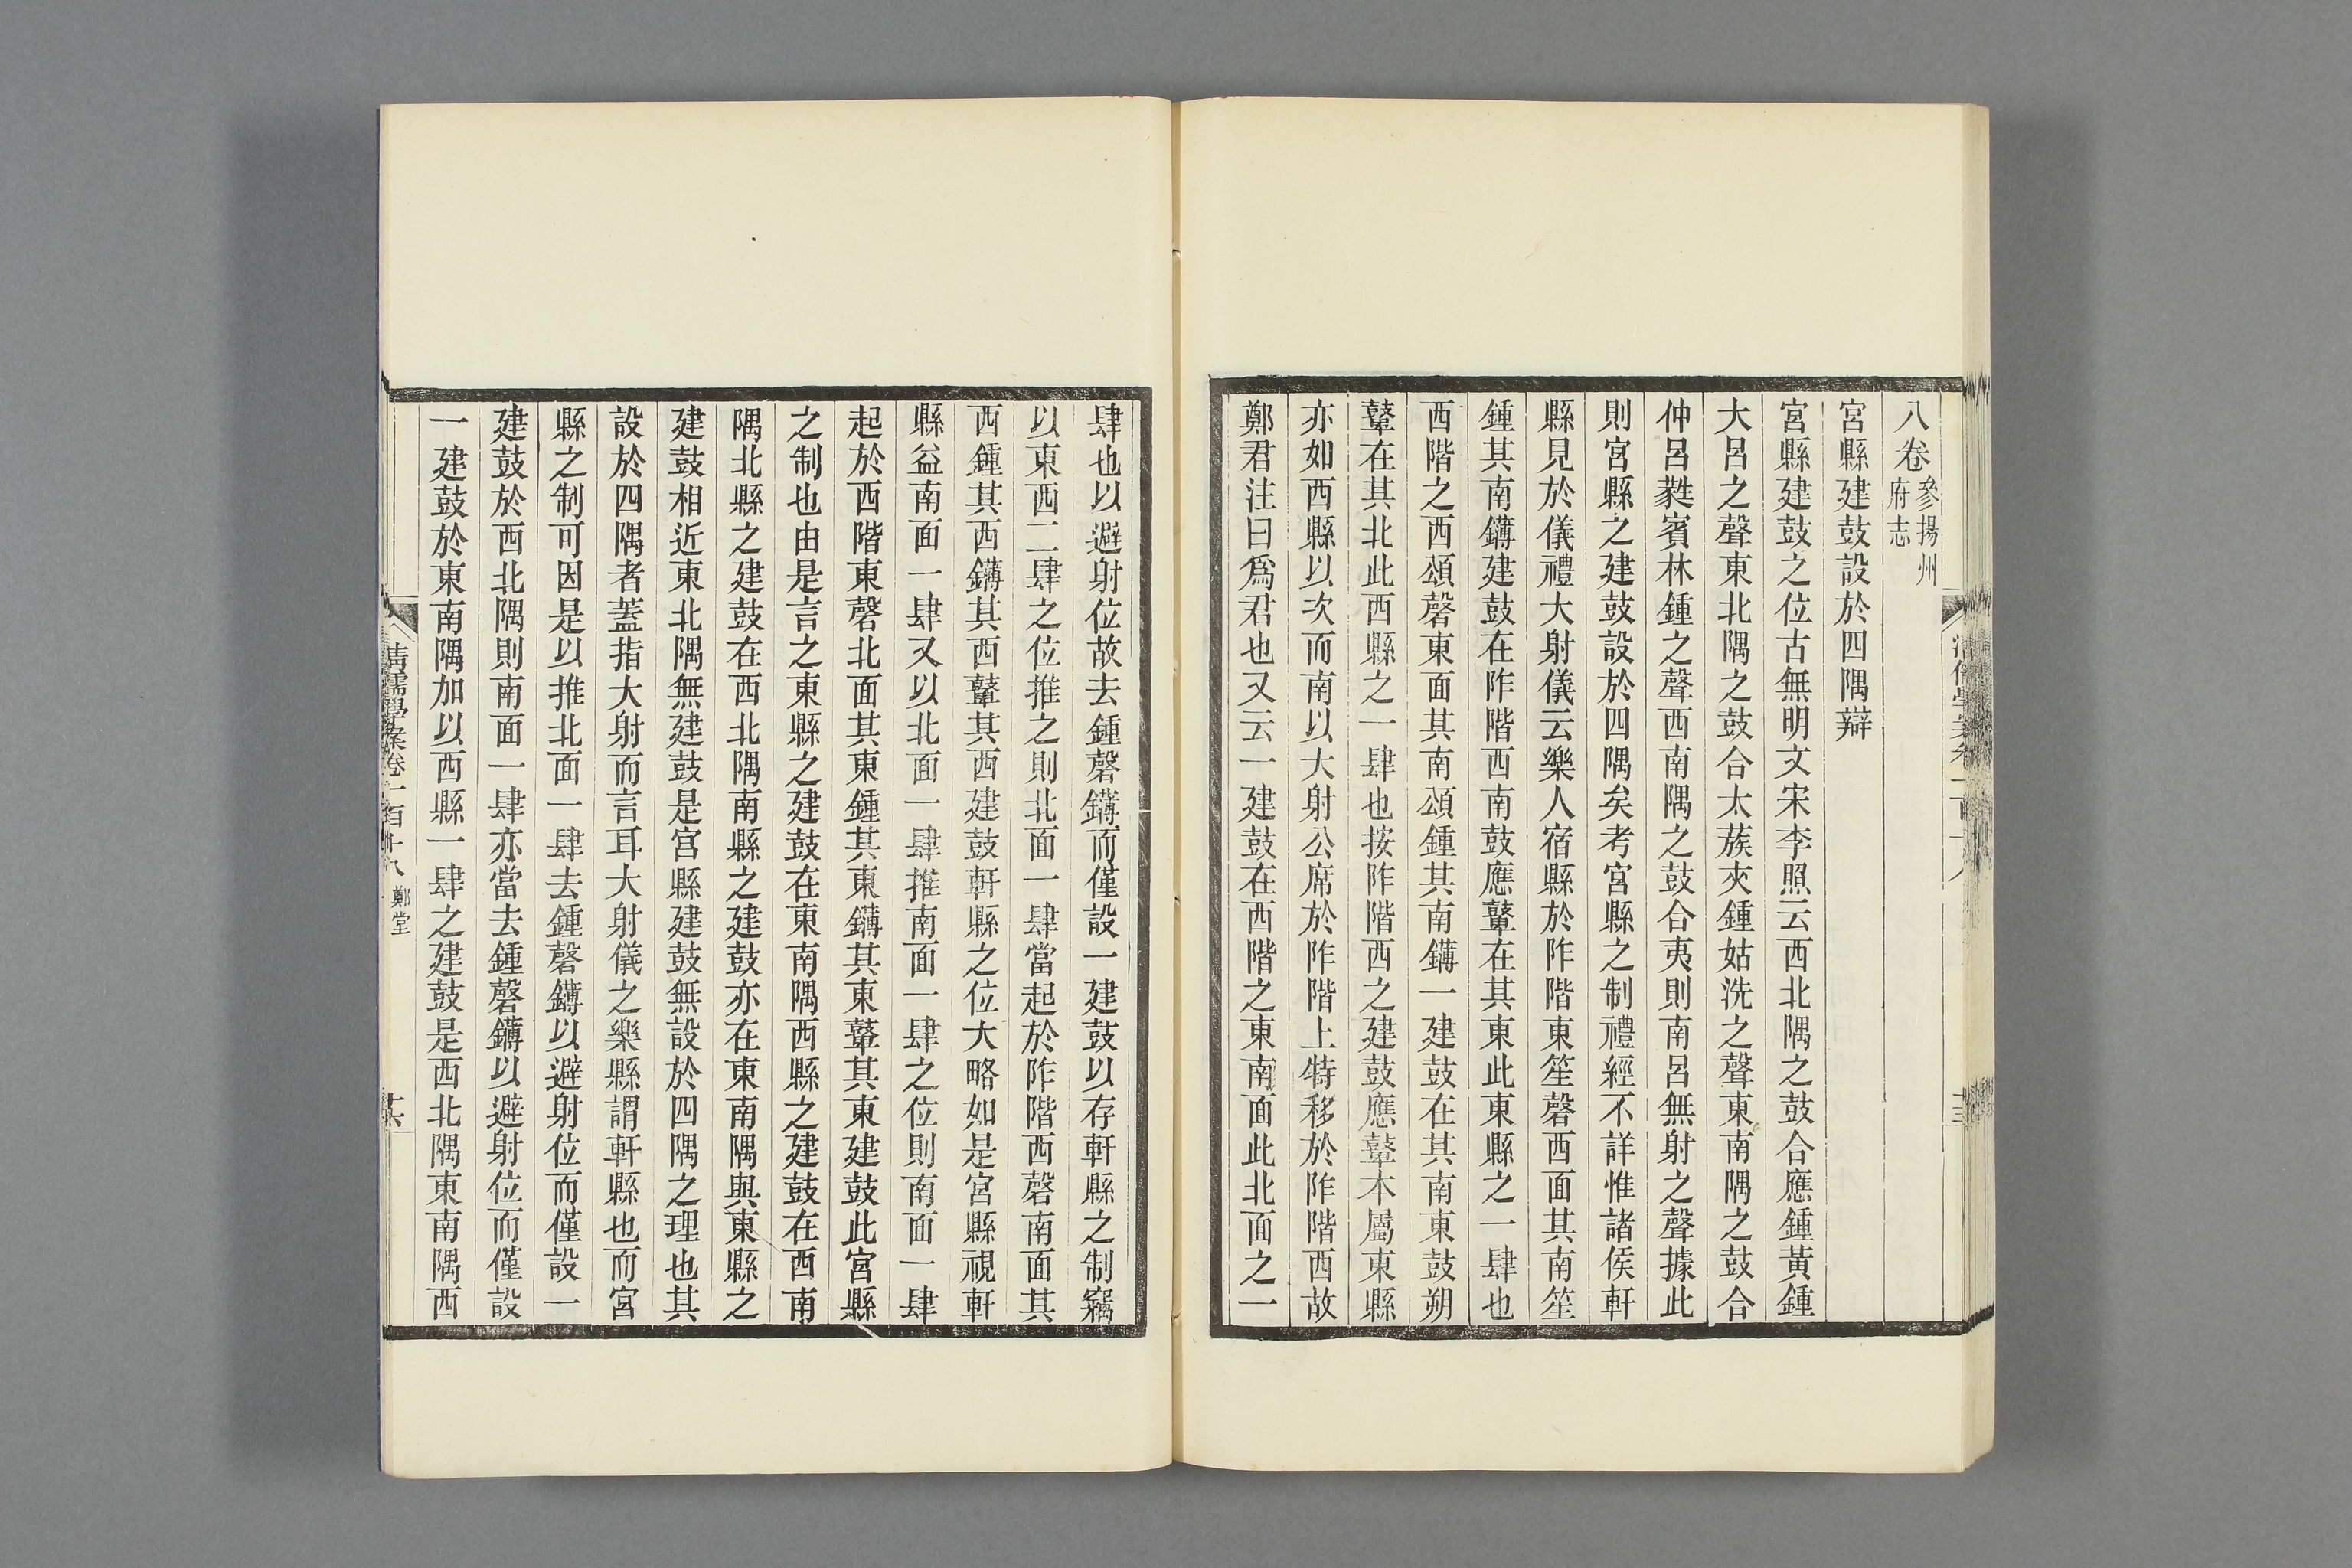 八卷參揚州府志
宮縣建鼓設於四隅辯
宮縣建鼓之位古無明文宋李照云西北隅之鼓合應鍾黃鍾
大呂之聲東北隅之鼓合太蔟夾鍾姑洗之聲東南隅之鼓合
仲呂蕤賓林鍾之聲西南隅之鼓合夷則南呂無射之聲據此
則宮縣之建鼓設於四隅矣考宮縣之制禮經不詳惟諸侯軒
縣見於儀禮大射儀云樂人宿縣於阼階東笙磬西面其南笙
鍾其南鑮建鼓在阼階西南鼓應鼙在其東此東縣之一肆也
西階之西頌磬東面其南頌鍾其南鑮一建鼓在其南東鼓朔
鼙在其北此西縣之一肆也按阼階西之建鼓應鼙本屬東縣
亦如西縣以次而南以大射公席於阼階上特移於阼階西故
鄭君注曰爲君也又云一建鼓在西階之東南面此北面之一
肆也以避射位故去鍾磬鑮而僅設一建鼓以存軒縣之制竊
以東西二肆之位推之則北面一肆當起於阼階西磬南面其
西鍾其西鑮其西鼙其西建鼓軒縣之位大略如是宮縣視軒
縣益南面一肆又以北面一肆推南面一肆之位則南面一肆
起於西階東磬北面其東鍾其東鑮其東鼙其東建鼓此宮縣
之制也由是言之東縣之建鼓在東南隅西縣之建鼓在西南
隅北縣之建鼓在西北隅南縣之建鼓亦在東南隅與東縣之
建鼓相近東北隅無建鼓是宮縣建鼓無設於四隅之理也其
設於四隅者蓋指大射而言耳大射儀之樂縣謂軒縣也而宮
縣之制可因是以推北面一肆去鍾磬鑮以避射位而僅設一
建鼓於西北隅則南面一肆亦當去鍾磬鑮以避射位而僅設
一建鼓於東南隅加以西縣一肆之建鼓是西北隅東南隅西
清儒學案卷一百十八 鄭堂